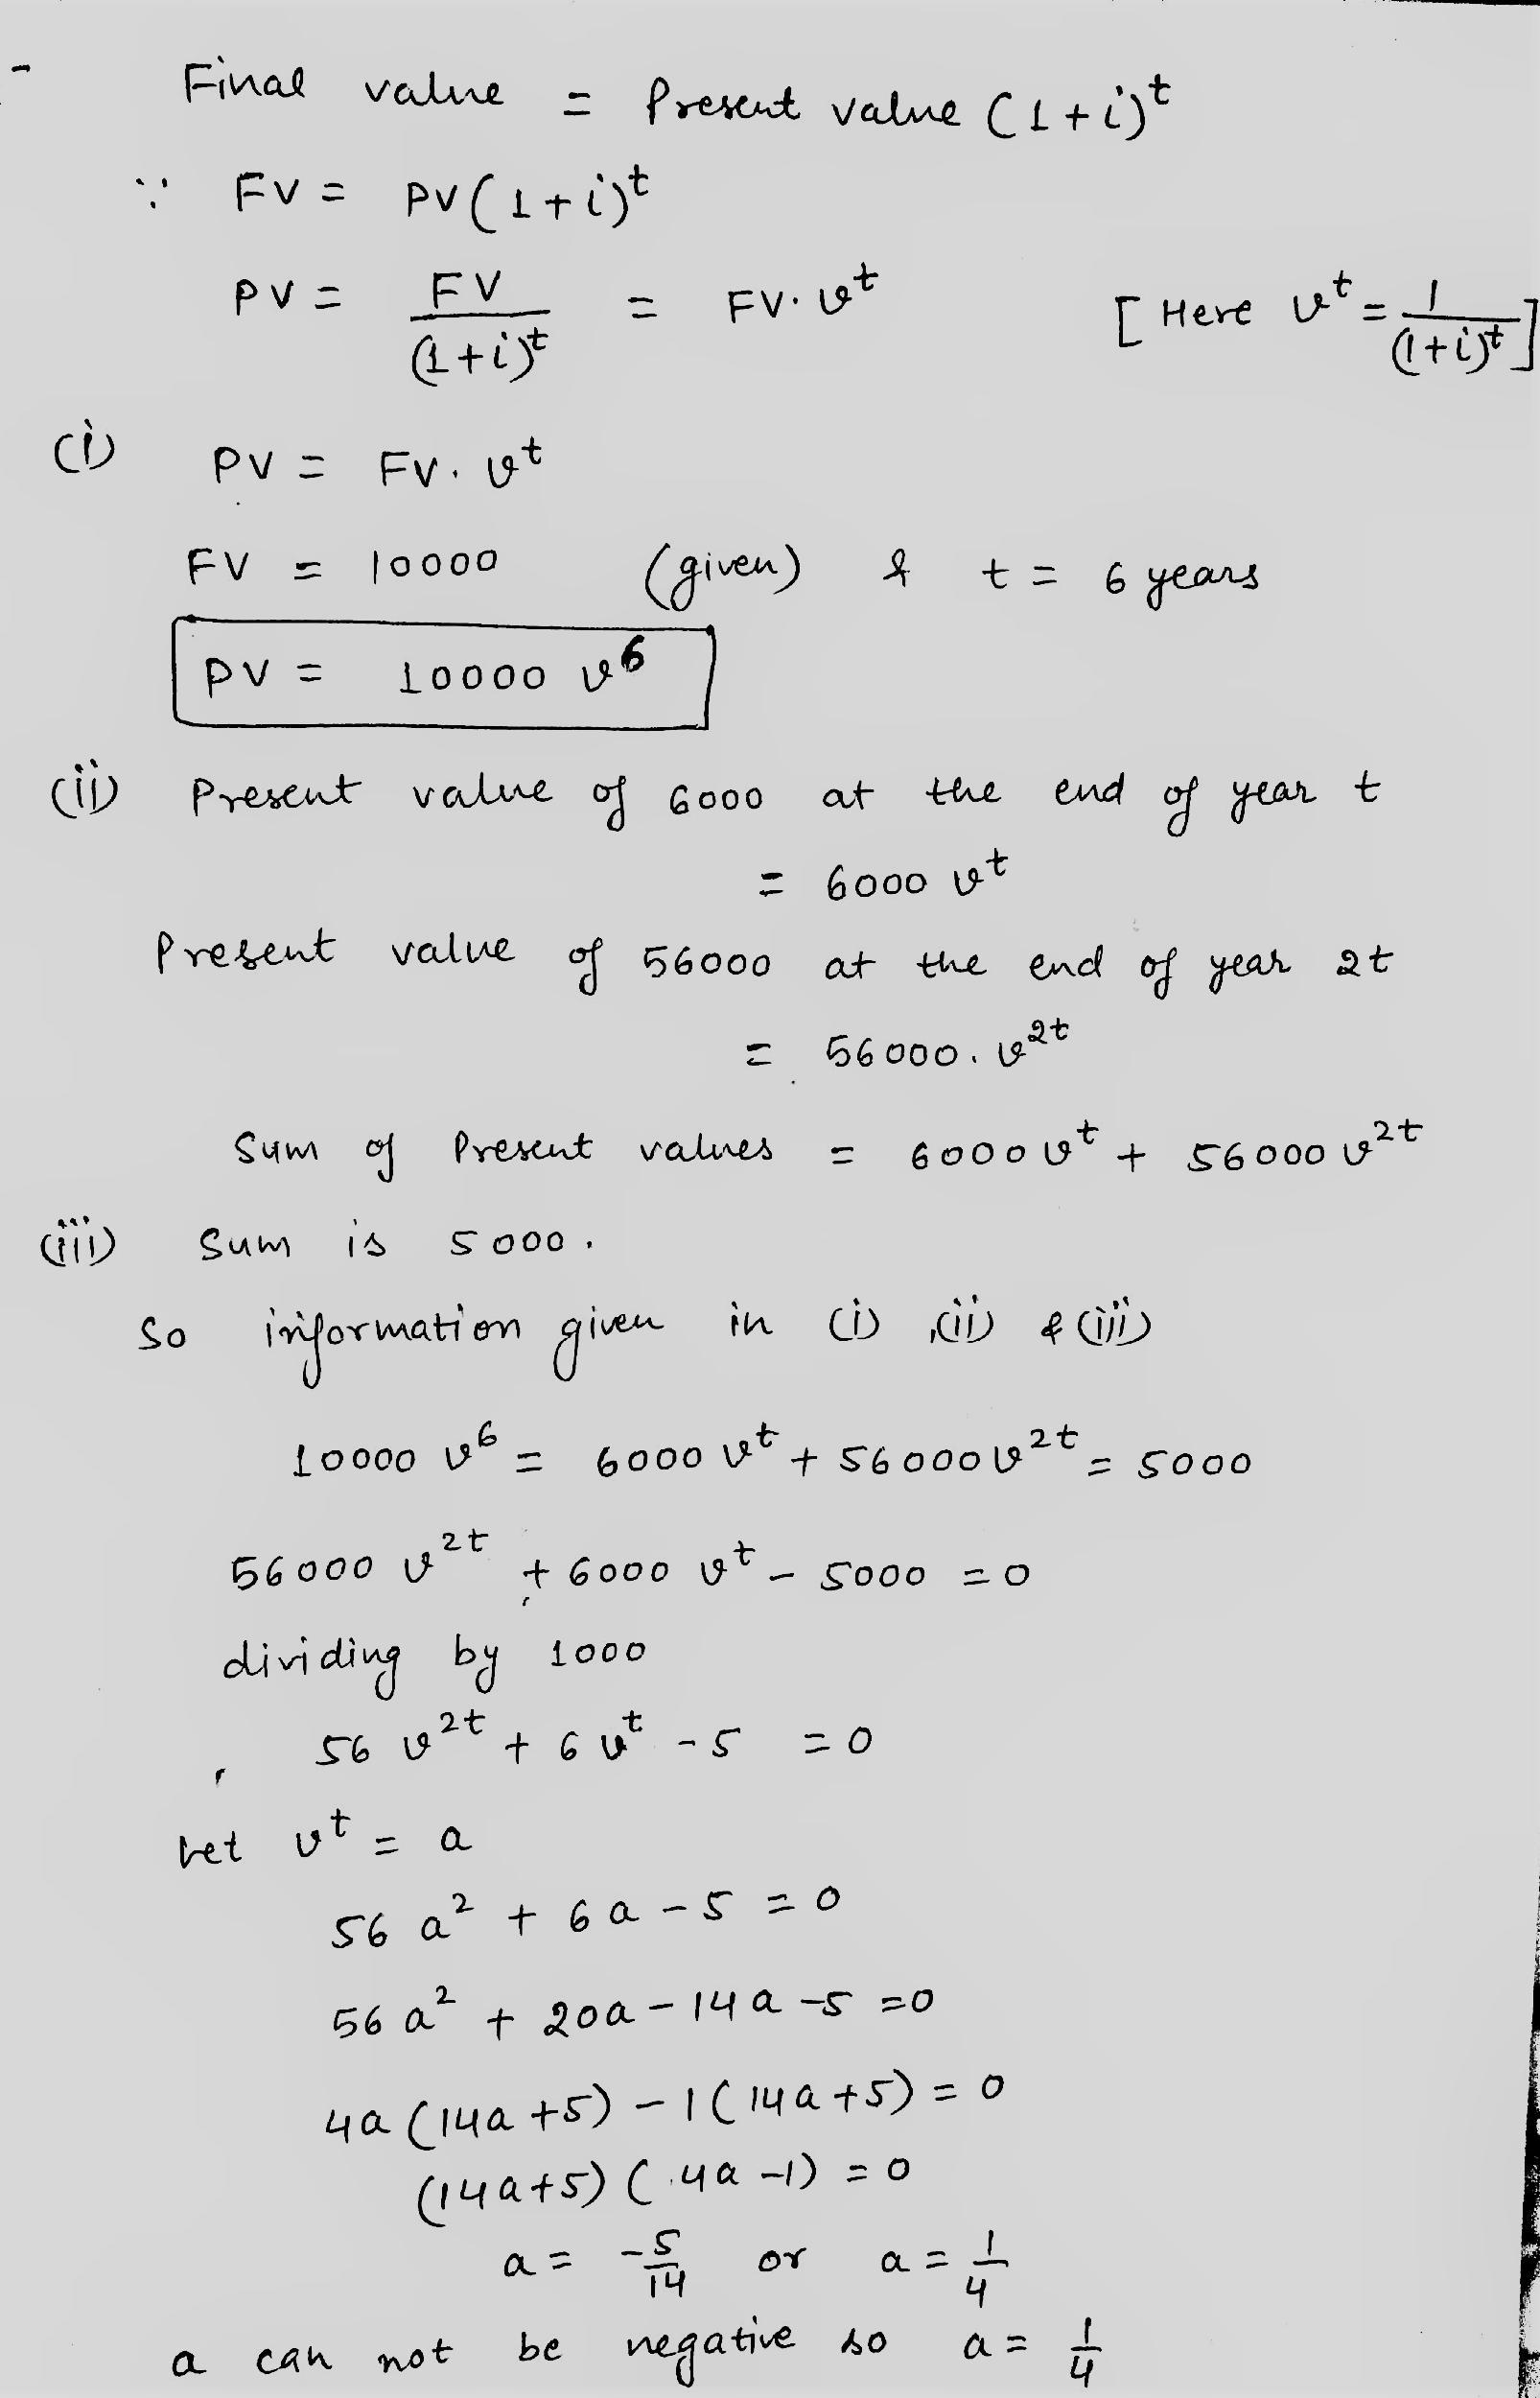 Final value = Present value (1+i)^t
∵ FV = PV(1+i)^t
PV = FV/(1+i)^t = FV.v^t [Here v^t = 1/(1+i)^t]
(i) PV = FV.v^t
FV = 10000 (given) & t = 6 years
PV = 10000 v^6
(ii) Present value of 6000 at the end of year t
= 6000 v^t
Present value of 56000 at the end of year 2t
= 56000.v^2t
Sum of Present values = 6000 v^t + 56000 v^2t
(iii) Sum is 5000.
So information given in (i) ,(ii) & (iii)
10000 v^6 = 6000 v^t + 56000 v^2t = 5000
56000 v^2t + 6000 v^t - 5000 = 0
dividing by 1000
56 v^2t + 6 v^t - 5 = 0
Let v^t = a
56 a^2 + 6a - 5 = 0
56 a^2 + 20a - 14a - 5 = 0
4a (14a+5) - 1(14a+5) = 0
(14a+5) (4a-1) = 0
a = -5/14 or a = 1/4
a can not be negative so a = 1/4